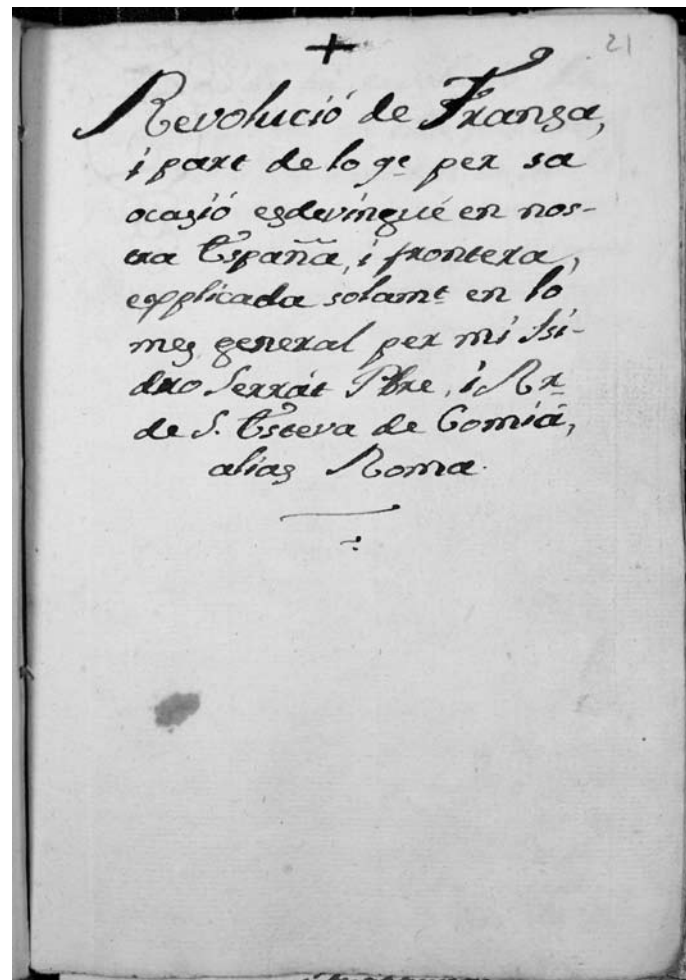 21
Revolució de Fransa,
i part de lo qe. per sa
ocasió esdevingué en nos-
tra España, i frontera,
espplicada solamt. en lo
mes general per mi Isi-
dro Serrát Pbre, i Rr.
de S. Esteva de Comiá,
alias Roma.